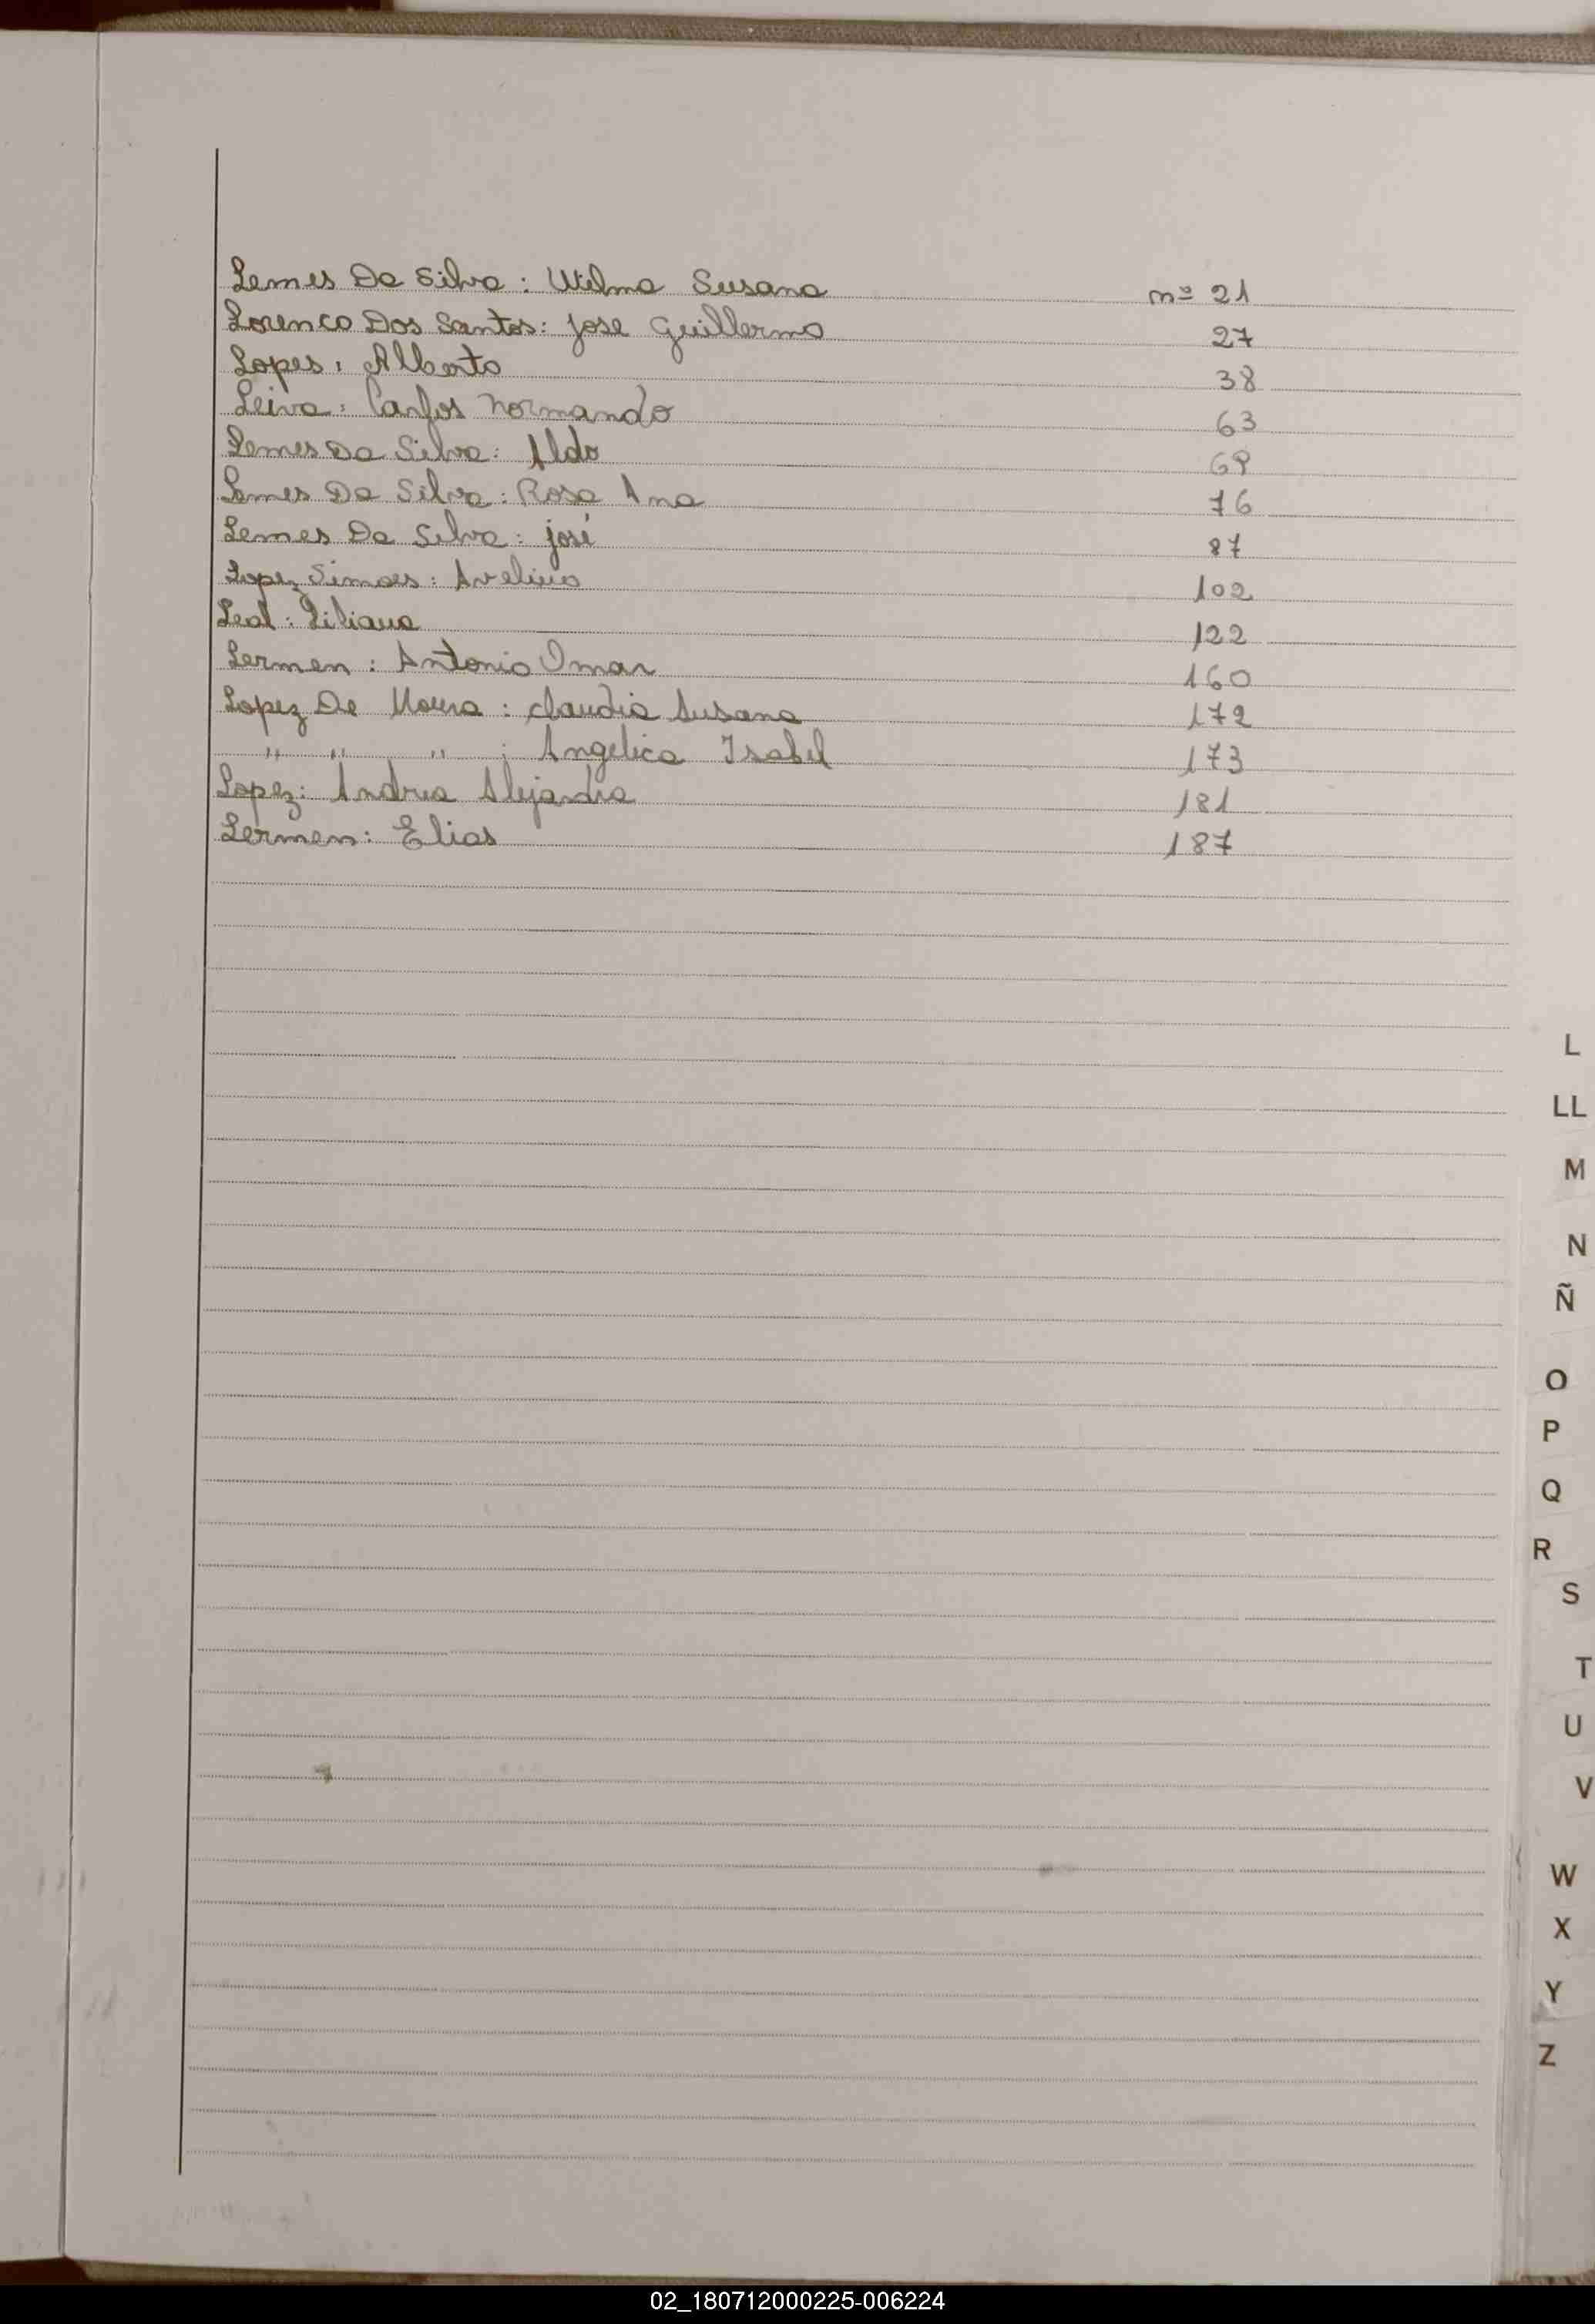 Lemes Da Silva : Wilma Susana nº 21
Lorenco Dos Santos: jose Guillermo 27
Lopes : Alberto 38
Leiva : Carlos Normando 63
Lemes Da Silva : Aldo 69
Lemes Da Silva : Rosa Ana 76
Lemes Da Silva : josé 87
Lopez Simoes : Avelino 102
Leal : Liliana 122
Lermen : Antonio Omar 160
Lopez De Moura : claudia Susana 172
" " " : Angelica Isabel 173
Lopez : Andrea Alejandra 181
Lermen : Elias 187
L
LL
M
N
Ñ
O
P
Q
R
S
T
U
V
W
X
Y
Z
02_180712000225-006224